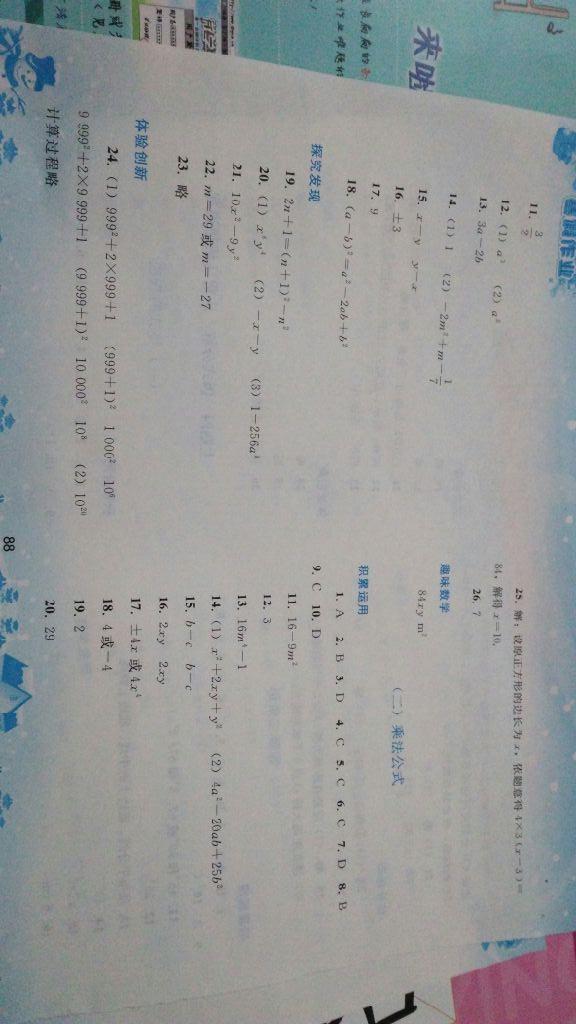 暑假作业
11. 3/2
12. (1) a³ (2) a²
13. 3a－2b
14. (1) 1 (2) －2m²＋m－1/7
15. x－y y－x
16. ±3
17. 9
18. (a－b)²＝a²－2ab＋b²
探究发现
19. 2n＋1＝(n＋1)²－n²
20. (1) x⁴y⁴ (2) －x－y (3) 1－256a⁴
21. 10x²－9y²
22. m＝29 或 m＝－27
23. 略
体验创新
24. (1) 999²＋2×999＋1 (999＋1)² 1 000² 10⁶
9 999²＋2×9 999＋1 (9 999＋1)² 10 000² 10⁸ (2) 10²⁰
计算过程略
25. 解：设原正方形的边长为 x，依题意得 4×3(x－3)＝
84，解得 x＝10.
26. 7
趣味数学
84xy m²
(二) 乘法公式
积累运用
1. A 2. B 3. D 4. C 5. C 6. C 7. D 8. B
9. C 10. D
11. 16－9m²
12. 3
13. 16m⁴－1
14. (1) x²＋2xy＋y² (2) 4a²－20ab＋25b²
15. b－c b－c
16. 2xy 2xy
17. ±4x 或 4x⁴
18. 4 或－4
19. 2
20. 29
88